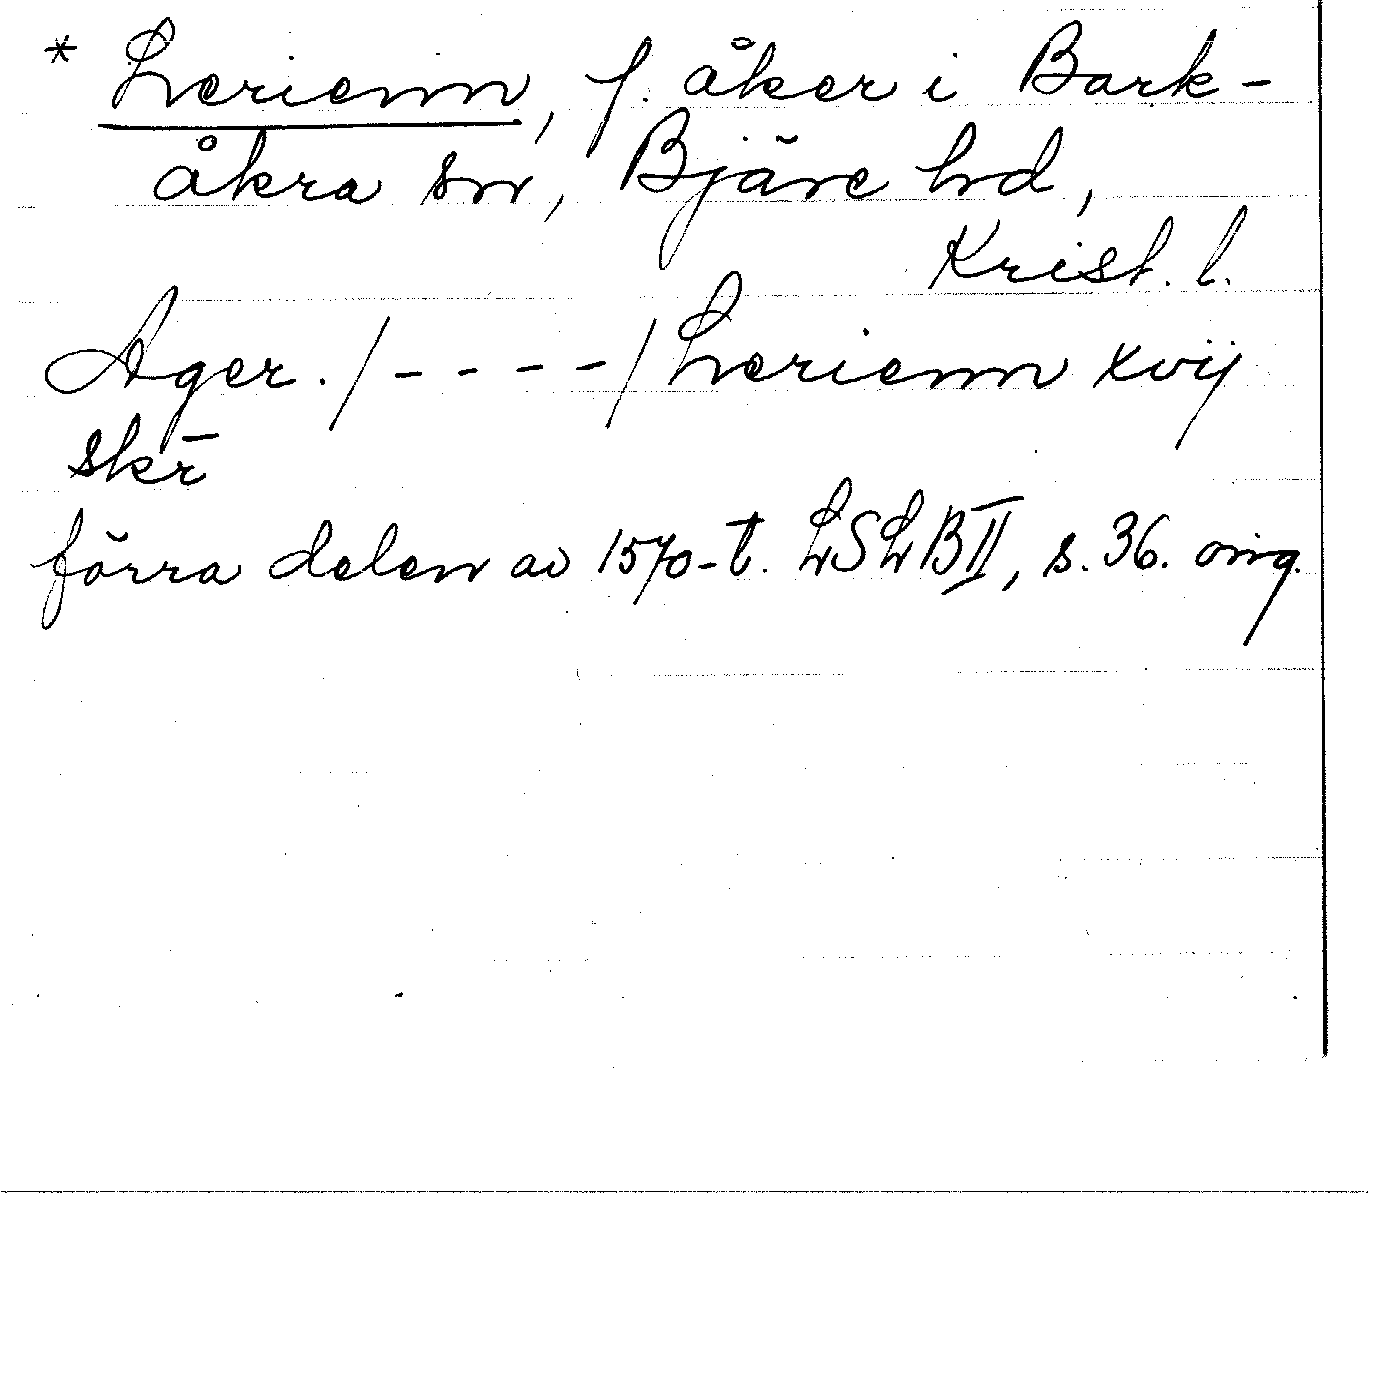 * Lerienn, f. åker i Bark-
åkra sn, Bjäre hd,
Krist. l.
Ager. /----/ Lerienn xvij
skr̄
förra delen av 1570-t. LSLB II, s. 36. omg.